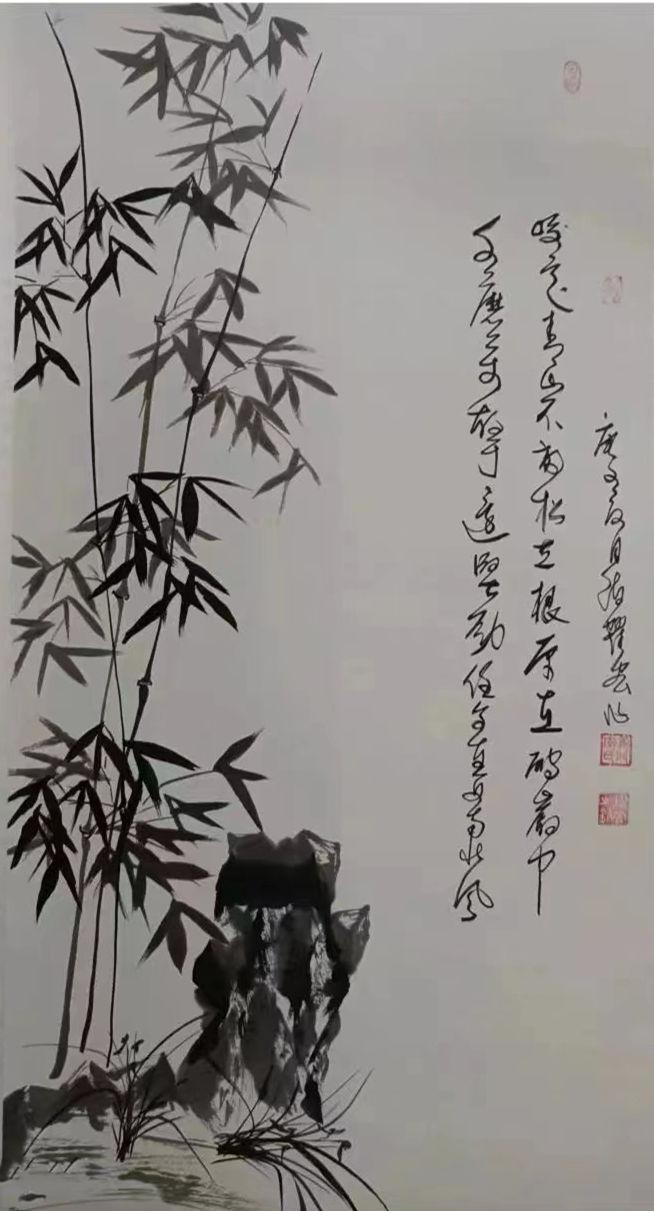 咬定青山不放松立根原在破岩中
千磨万击还坚劲任尔东西南北风
庚子夏月